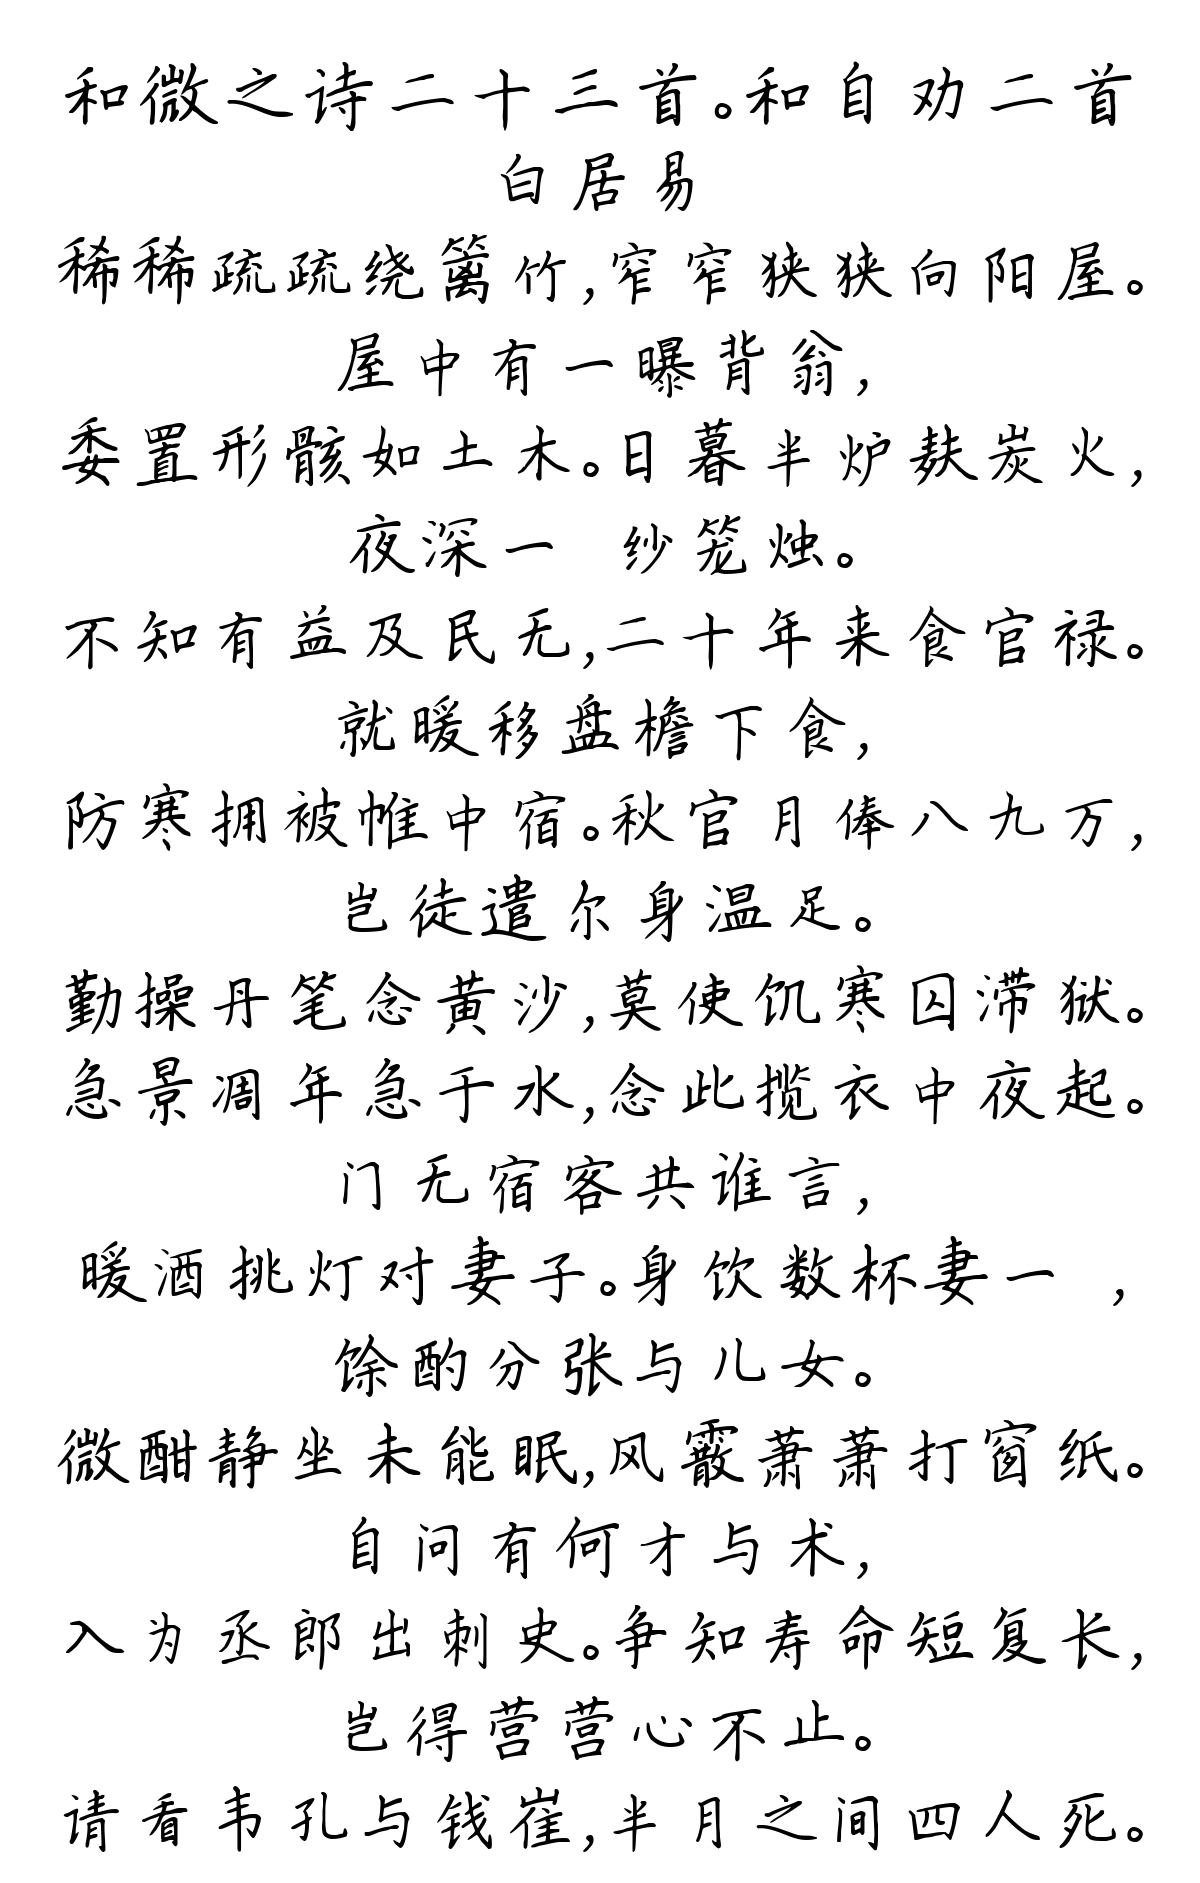 和微之诗二十三首。和自劝二首
白居易
稀稀疏疏绕篱竹,窄窄狭狭向阳屋。
屋中有一曝背翁,
委置形骸如土木。日暮半炉麸炭火,
夜深一 纱笼烛。
不知有益及民无,二十年来食官禄。
就暖移盘檐下食,
防寒拥被帷中宿。秋官月俸八九万,
岂徒遣尔身温足。
勤操丹笔念黄沙,莫使饥寒囚滞狱。
急景凋年急于水,念此揽衣中夜起。
门无宿客共谁言,
暖酒挑灯对妻子。身饮数杯妻一 ,
馀酌分张与儿女。
微酣静坐未能眠,风霰萧萧打窗纸。
自问有何才与术,
入为丞郎出刺史。争知寿命短复长,
岂得营营心不止。
请看韦孔与钱崔,半月之间四人死。